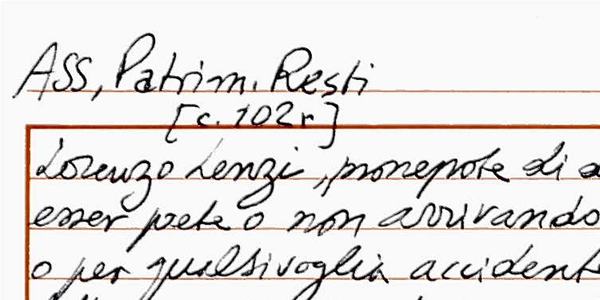 ASS, Patrim. Resti
[c. 102r]
Lorenzo Lenzi, pronepote di
esser prete o non arrivando
o per qualsivoglia accident